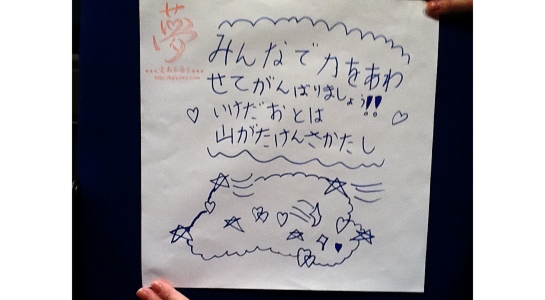 夢
みんなで力をあわ
せてがんばりましょう!!
いけだ おとは
山がたけんさかたし